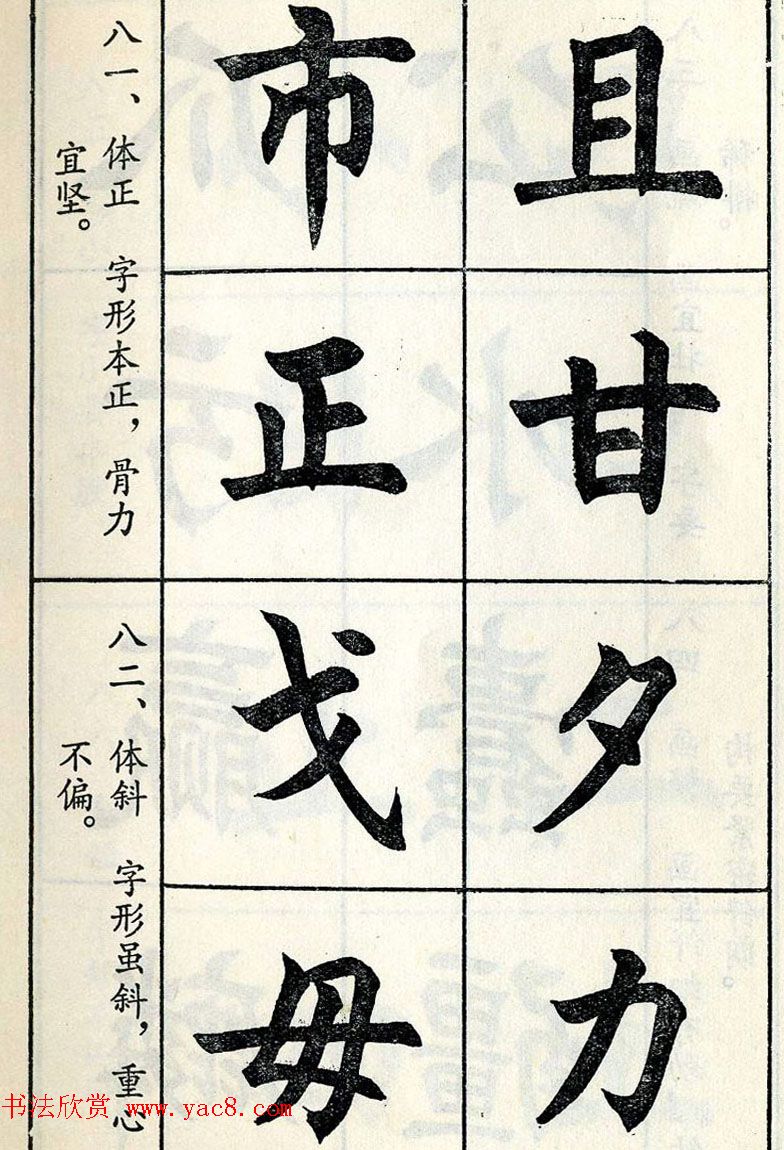 且
甘
市
正
八一、体正 字形本正，骨力
宜坚。
夕
力
戈
毋
八二、体斜 字形虽斜，重心
不偏。
书法欣赏 www.yac8.com